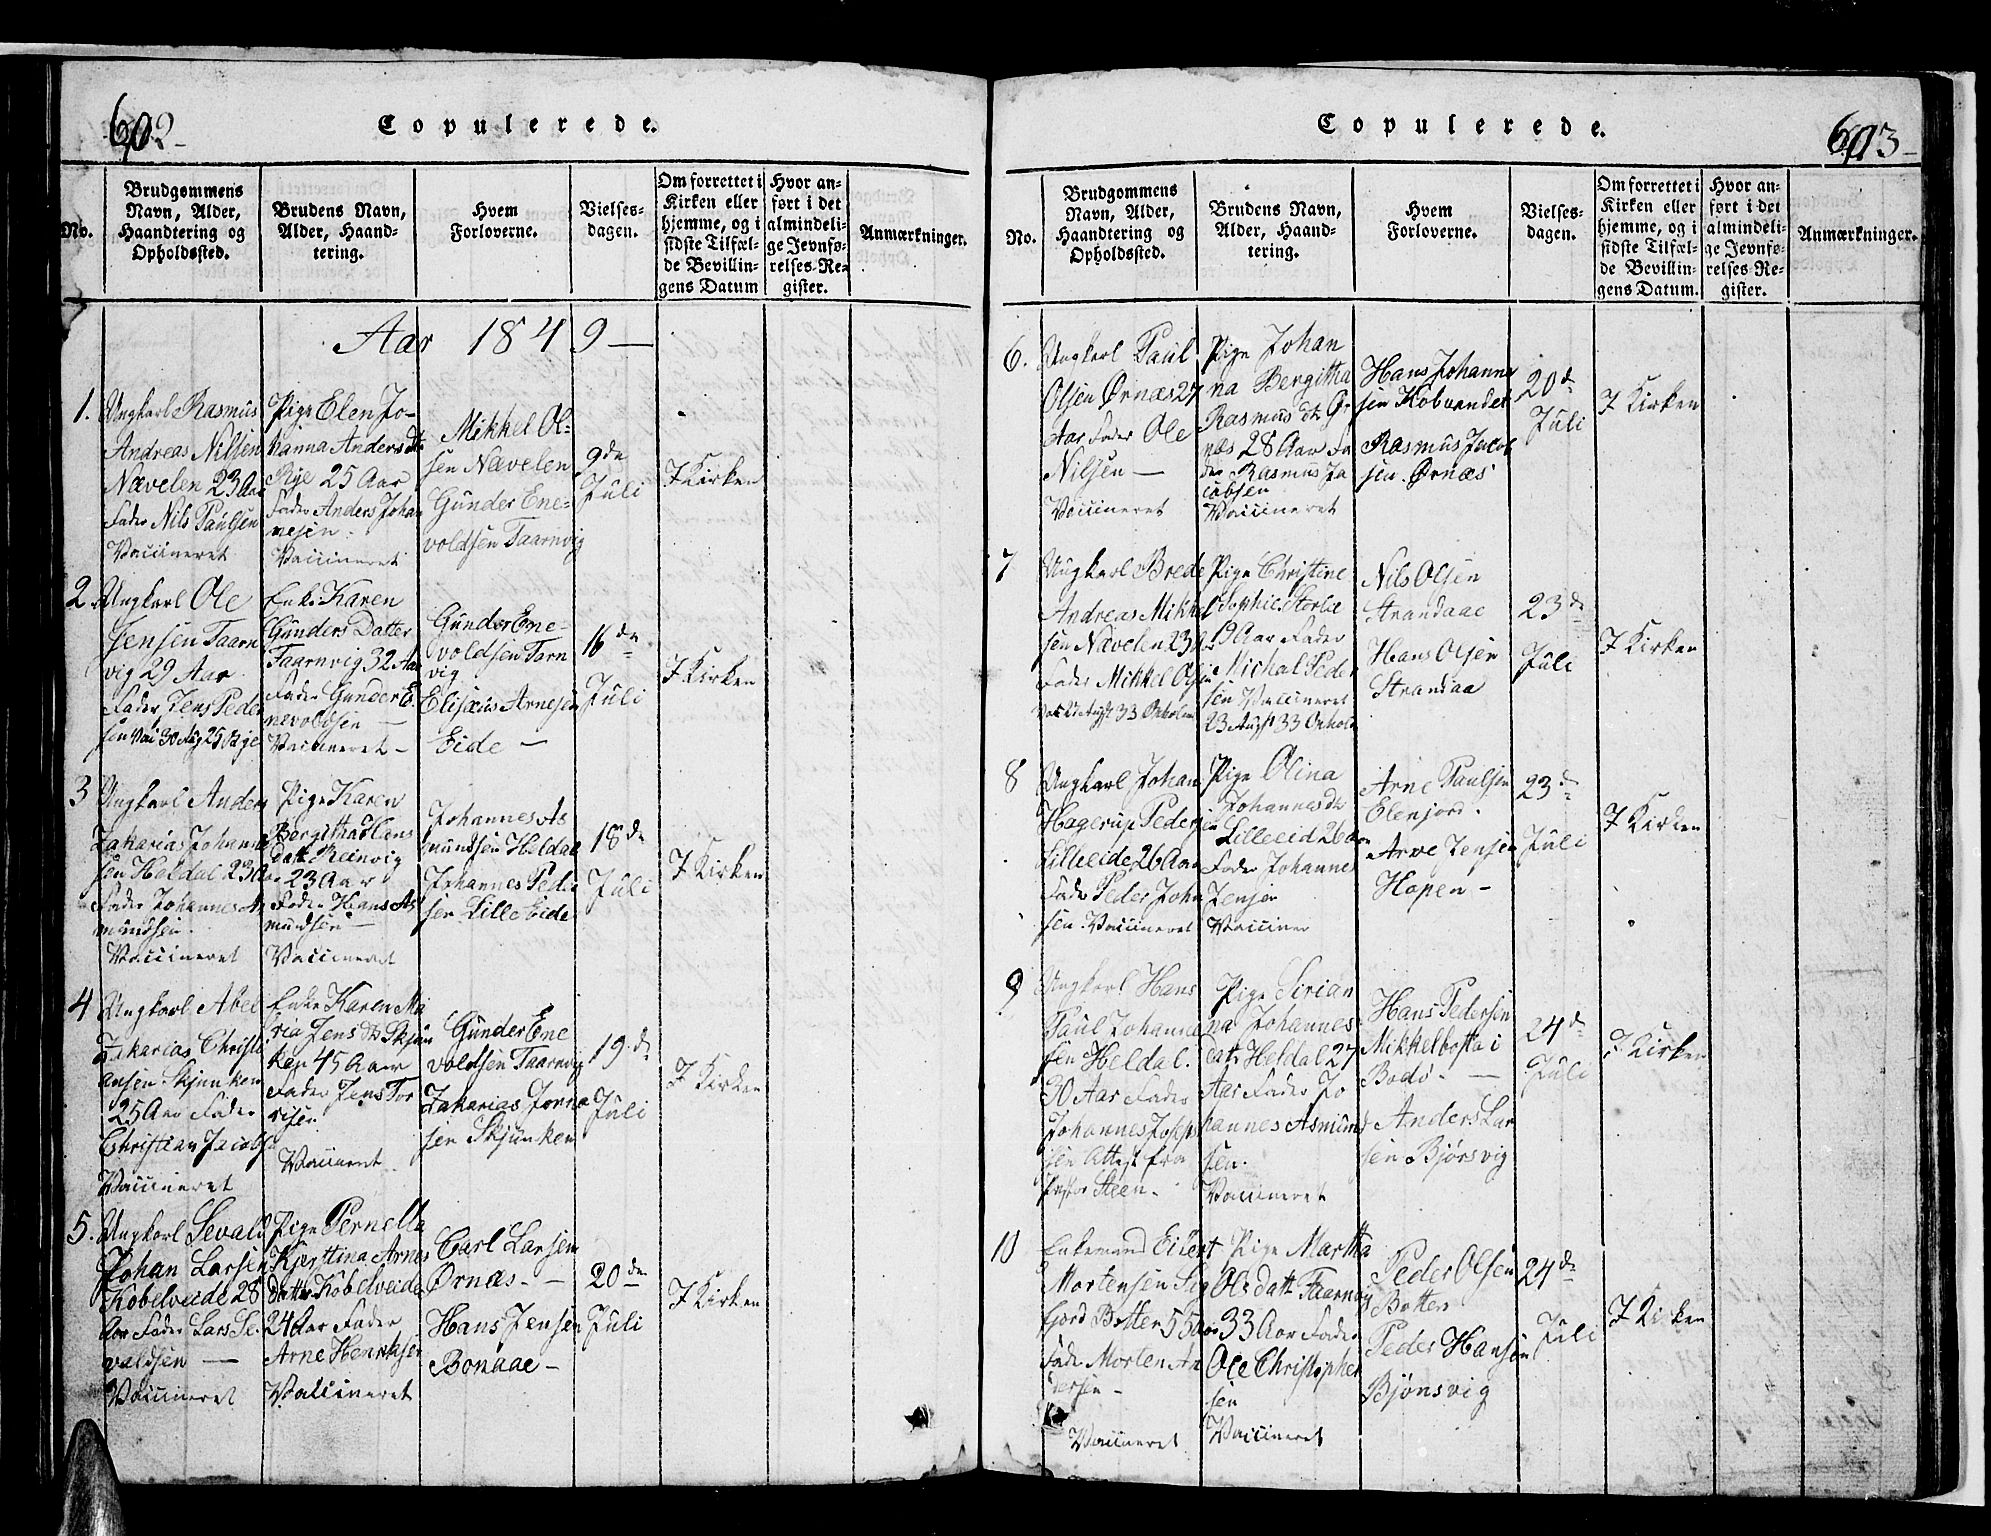 602
Copulerede.
No.
Brudgommens
Navn, Alder,
Haandtering og
Opholdssted.
Brudens Navn,
Alder, Haand-
tering.
Hvem
Forloverne.
Vielses-
dagen.
Om forrettet i
Kirken eller
hjemme, og i
sidste Tilfæl-
de Bevillin-
gens Datum
Hvor an-
ført i det
almindeli-
ge Jevnfø-
relses-Re-
gister.
Anmærkninger.
Aar 1849 —
1.
Ungkarl Rasmus
Andreas Nilsen
Nævelen 23 Aar
Fader Nils Paulsen
Vaccineret
Pige Elen Jo-
hanna Anders dtr
Rye 25 Aar
Fader Anders Johan
nesen.
Vaccineret
Mikkel Ol-
sen Nævelen
Gunder Ene-
voldsen Taarnvig
9de
Juli
I Kirken
2.
Ungkarl Ole
Jensen Taarn
vig 29 Aar
Fader Jens Peder
sen Vac 30 Aug 25
Enke Karen
Gunders Datter
Taarnvig 32 Aar
Fader Gunder E-
nevoldsen —
Vaccineret —
Gunder Ene-
voldsen Tarn
vig
Elisæus Arnesen
Eide —
16de
Juli
I Kirken
3
Ungkarl Anders
Zakarias Johanne
sen Heldal 23 Aar
Fader Johannes As
mundsen.
Vaccineret
Pige Karen
Bergitha Hans
datt Reinvig
23 Aar
Fader Hans As
mundsen —
Vaccineret
Johannes As
mundsen Heldal
Johannes Peder
sen Lille Eide
18de
Juli
I Kirken
4
Ungkarl Abel
Zakarias Christi
ansen Skjunken
25 Aar Fader
Christian Jacobs
Vaccineret
Enke Karen Ma
ria Jens dtr Skjun
ken 45 Aar
Fader Jens Tor
risen
Vaccineret
Gunder Ene
voldsen Taarnvig
Zakarias Jonna
sen Skjunken
19.de
Juli
I Kirken
5.
Ungkarl Sevald
Johan Larsen
Kobelveide 28
Aar Fader Lars Se-
valdsen —
Vaccineret
Pige Pernella
Kjerstina Arnes
datter Kobelveide
24 Aar Fader
Arne Henriksen
Vaccineret
Carl Larsen
Ørnæs. —
Hans Jensen
Bonaae —
20de
Juli
I Kirken
603
Copulerede.
No.
Brudgommens
Navn, Alder,
Haandtering og
Opholdssted.
Brudens Navn,
Alder, Haand-
tering.
Hvem
Forloverne.
Vielses-
dagen.
Om forrettet i
Kirken eller
hjemme, og i
sidste Tilfæl-
de Bevillin-
gens Datum.
Hvor an-
ført i det
almindeli-
ge Jevnfø-
relses-Re-
gister.
Anmærkninger.
6.
Ungkarl Paul
Olsen Ørnæs 27
Aar Fader Ole
Nilsen —
Vaccineret
Pige Johan
na Bergitha
Rasmus dtr Ør
næs 28 Aar Fa
der Rasmus Ja
cobsen
Vaccineret
Hans Johanne
sen Kobvandet
Rasmus Jacob
sen. Ørnæs
20de
Juli
I Kirken
7
Ungkarl Brede
Andreas Mikkel
sen Nævelen 23 A
Fader Mikkel Olsen
Pige Christine
Sophie Sterke
19 Aar Fader
Michal Peder
sen Vaccineret
23 Augst 33
Nils Olsen
Strandaae
Hans Olsen
Strandaa
23de
Juli
I Kirken
8
Ungkarl Johan
Hagerup Peders
Lilleeide 26 Aar
Fader Peder John
sen. Vaccineret
Pige Olina
Johannes dtr
Lilleeid 26 Aar
Fader Johannes
Jensen
Vacciner
Arne Paulsen
Elenjord.
Arne Jensen
Hopen —
23de
Juli
I Kirken
9
Ungkarl Hans
Paul Johanne
sen Heldal.
30 Aar Fader
Johannes Joseph
sen Attest fra
Pastor Steen.
Pige Sirian
na Johannes
datr Heldal 27
Aar Fader Jo
hannes Asmund
sen.
Vaccineret
Hans Pedersen
Mikkelbostad i
Bodø. —
Anders Lar
sen Bjørsvig
24de
Juli
I Kirken
10
Enkemand Eilert
Mortensen Sag
fjord Botten 55 Aar
Fader Morten An
dersen —
Vaccineret
Pige Martha
Ols datt Taarnvig
33 Aar Fader
Ole Christopher
sen
Vaccineret
Peder Olsen
Botten
Peder Hansen
Bjønsvig
24de
Juli
I Kirken